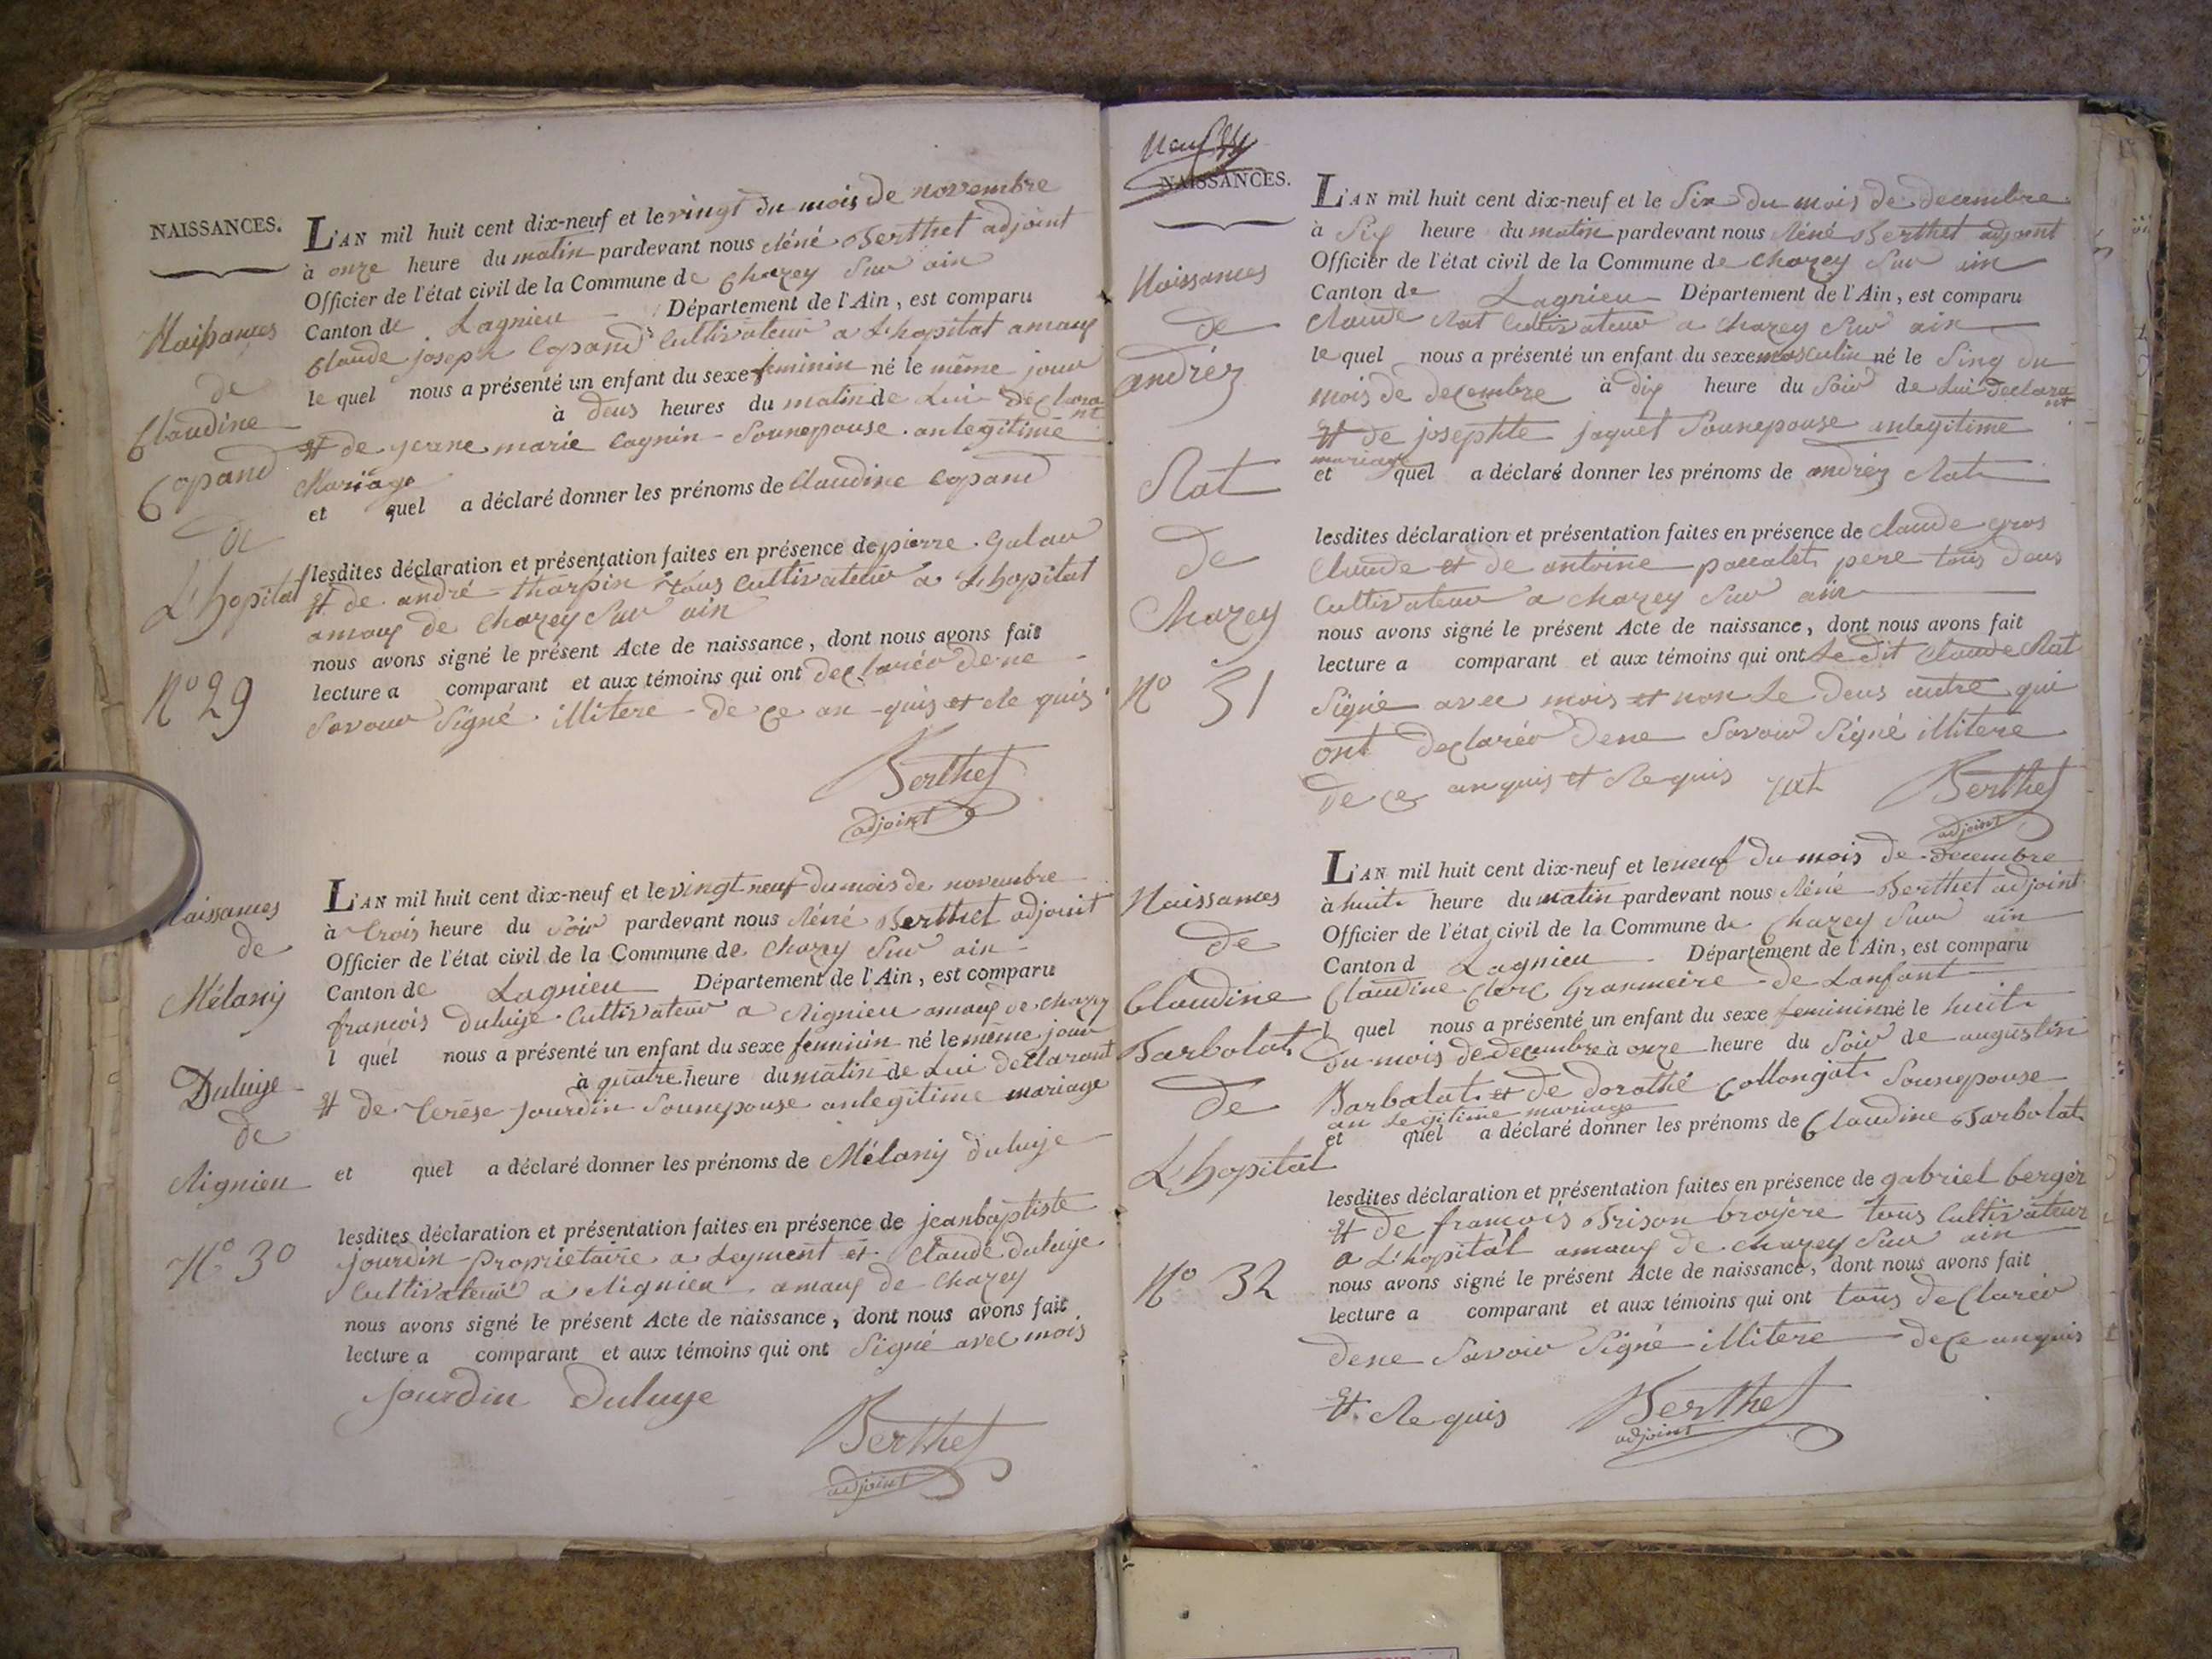 NAISSANCES.
Naissances
de
Claudine
Copand
de
L'hopital
N° 29
L'AN mil huit cent dix-neuf et le vingt du mois de novembre
à onze heure du matin pardevant nous Réné Berthet adjoint
Officier de l'état civil de la Commune de Chazey Sur ain
Canton de Lagnieu Département de l'Ain, est comparu
Claude joseph Copand Cultivateur a L'hopital amaux
le quel nous a présenté un enfant du sexe feminin né le même jour
à deus heures du matin de Lui Declarant
et de jeane marie Cagnin Sounepouse anlegitime
Mariage
et quel a déclaré donner les prénoms de Claudine Copand
lesdites déclaration et présentation faites en présence de pierre
et de andré tharpin tous Cultivateur a L'hopital
amaux de Chazey Sur ain
nous avons signé le présent Acte de naissance, dont nous avons fait
lecture a comparant et aux témoins qui ont declaréo dene
Savoir Signé illitere de ce an quis et Re quis
Berthet
adjoint
Naissances
de
Mélanij
Duluije
de
Rignieu
N° 30
L'AN mil huit cent dix-neuf et le vingt neuf du mois de novembre
à trois heure du Soir pardevant nous Réné Berthet adjoint
Officier de l'état civil de la Commune de Chazey Sur ain
Canton de Lagnieu Département de l'Ain, est comparu
francois Duluije Cultivateur a Rignieu amaux de Chazey
l quel nous a présenté un enfant du sexe feminin né le même jour
à quatre heure du matin de Lui declarant
et de Terese Jourdin Sounepouse anlegitime mariage
et quel a déclaré donner les prénoms de Mélanij duluije
lesdites déclaration et présentation faites en présence de jeanbaptiste
jourdin Proprietaire a Leyment et Claude duluije
Cultivateur a Rignieu amaux de Chazey
nous avons signé le présent Acte de naissance, dont nous avons fait
lecture a comparant et aux témoins qui ont Signé avec mois
Jourdin Duluije
Berthet
adjoint
Neuf
NAISSANCES.
Naissances
de
andréz
Rat
de
Chazey
N° 31
L'AN mil huit cent dix-neuf et le Six du mois de decembre
à Six heure du matin pardevant nous Réné Berthet adjoint
Officier de l'état civil de la Commune de Chazey Sur ain
Canton de Lagnieu Département de l'Ain, est comparu
Claude Rat Cultivateur a Chazey Sur ain
le quel nous a présenté un enfant du sexe masculin né le Sinq du
mois de decembre à dix heure du Soir de Lui Declarant
et de josephte jaquet Sounepouse anlegitime
mariage
et quel a déclaré donner les prénoms de andréz Rat
lesdites déclaration et présentation faites en présence de Claude gros
Claude et de antoine pere tous deus
Cultivateur a Chazey Sur ain
nous avons signé le présent Acte de naissance, dont nous avons fait
lecture a comparant et aux témoins qui ont Le dit Claude Rat
Signé avec mois et non Le deus autre qui
ont declaréo dene Savoir Signé illitere
de ce anquis et Re quis rat Berthet
adjoint
Naissances
de
Claudine
Barbolat
de
L'hopital
N° 32
L'AN mil huit cent dix-neuf et le neuf du mois de decembre
à huit heure du matin pardevant nous Réné Berthet adjoint
Officier de l'état civil de la Commune de Chazey Sur ain
Canton d Lagnieu Département de l'Ain, est comparu
Claudine Clerc Granmeire de Lanfant
l quel nous a présenté un enfant du sexe feminin né le huit
du mois de decembre à onze heure du Soir de augustin
Barbolat et de dorothé Collongat Sounepouse
an Legitime mariage
et quel a déclaré donner les prénoms de Claudine Barbolat
lesdites déclaration et présentation faites en présence de gabriel berger
et de francois Brison broyere tous Cultivateur
a L'hopital amaux de chazey Sur ain
nous avons signé le présent Acte de naissance, dont nous avons fait
lecture a comparant et aux témoins qui ont tous declaréo
dene Savoir Signé illitere de ce anquis
et Re quis Berthet
adjoint